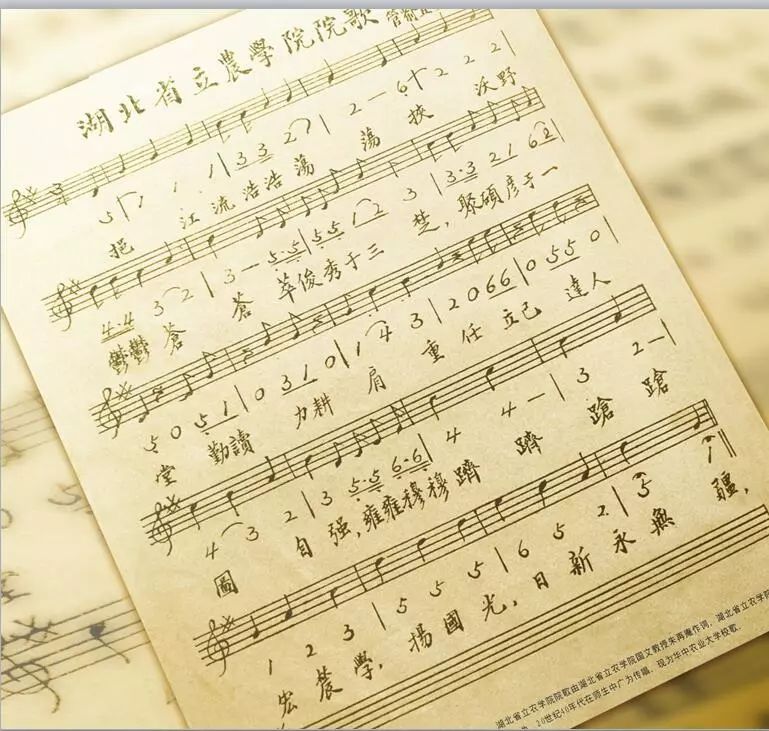 湖北省立農學院院歌
5 1 1 1 | 3 3 2 | 2 — 6 2 2 2 |
挹 江流浩浩蕩 蕩 挾 沃野
4·4 3 2 | 3 — 5·5 5 5 1 2 3 | 3·3 2 1 6 2 |
鬱鬱 蒼 蒼 萃俊秀于三 楚, 聚碩彥于一
5 0 5 1 | 0 3 1 0 | 1 4 3 | 2 0 6 6 | 0 5 5 0 |
堂 勤讀 力耕 肩 重 任 立己 達人
4 3 2 | 3 5·5 6·6 | 4 4 — | 3 2 — |
圖 自强, 雍雍穆穆躋 躋 蹌 蹌
1 2 3 | 5 5 5 | 6 5 2 | 5 1 ||
宏 農 學, 揚 國 光, 日 新 永 無 疆,
湖北省立农学院院歌由湖北省立农学院国文教授朱再庵作词，湖北省立农学院
20世纪40年代在师生中广为传唱，现为华中农业大学校歌.